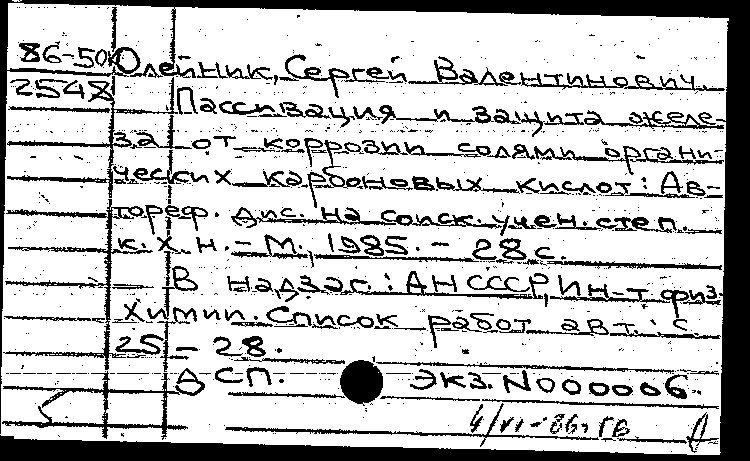 86-50к Олейник, Сергей Валентинович.
2548 Пассивация и защита желе-
за от коррозии солями органи-
ческих карбоновых кислот: Ав-
тореф. дис. на соиск. учен. степ.
к.х.н. - М., 1985. - 28 с.
В надзаг.: АН СССР, Ин-т физ.
химии. Список работ авт.: с.
25 - 28.
ДСП. Экз. N000006.
4/VI-86г. ГВ